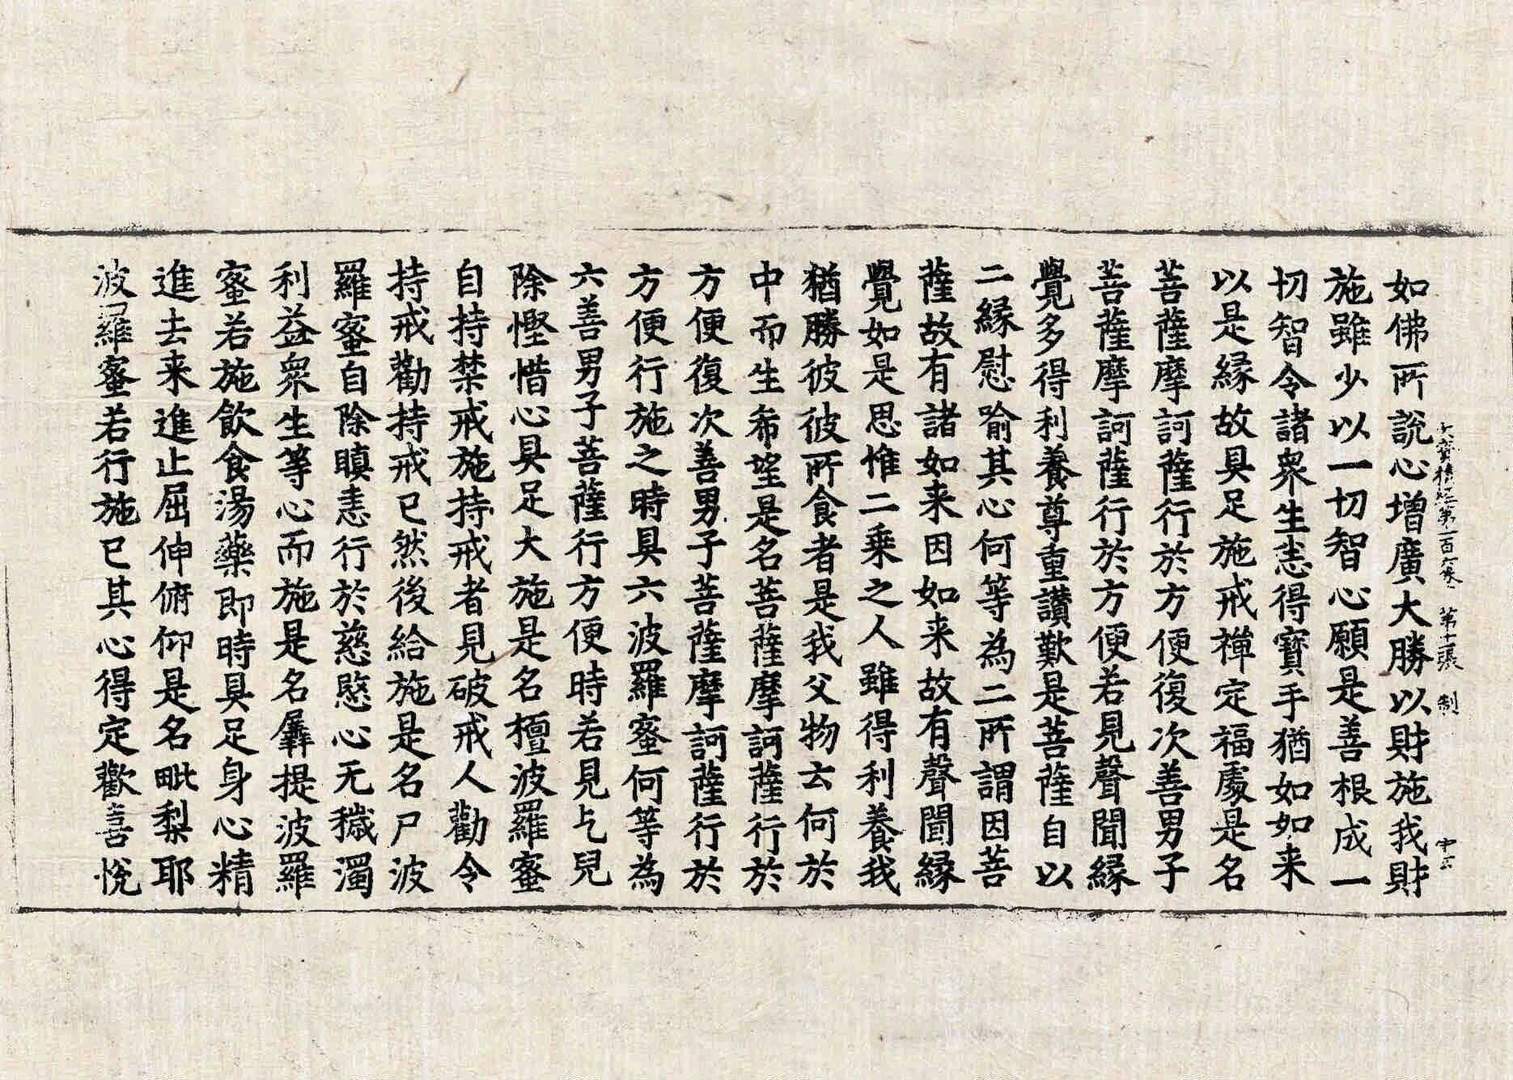 大寶積經第一百六卷 第十二張 制
如佛所説心增廣大勝以財施我財
施雖少以一切智心願是善根成一
切智令諸衆生悉得寶手猶如如来
以是縁故具足施戒禪定福處是名
菩薩摩訶薩行於方便復次善男子
菩薩摩訶薩行於方便若見聲聞縁
覺多得利養尊重讃歎是菩薩自以
二縁慰喻其心何等為二所謂因菩
薩故有諸如来因如来故有聲聞縁
覺如是思惟二乗之人雖得利養我
猶勝彼彼所食者是我父物云何於
中而生希望是名菩薩摩訶薩行於
方便復次善男子菩薩摩訶薩行於
方便行施之時具六波羅蜜何等為
六善男子菩薩行方便時若見乞兒
除慳惜心具足大施是名檀波羅蜜
自持禁戒施持戒者見破戒人勸令
持戒勸持戒已然後給施是名尸波
羅蜜自除瞋恚行於慈愍心无穢濁
利益衆生等心而施是名羼提波羅
蜜若施飲食湯藥即時具足身心精
進去来進止屈伸俯仰是名毗梨耶
波羅蜜若行施已其心得定歡喜悅